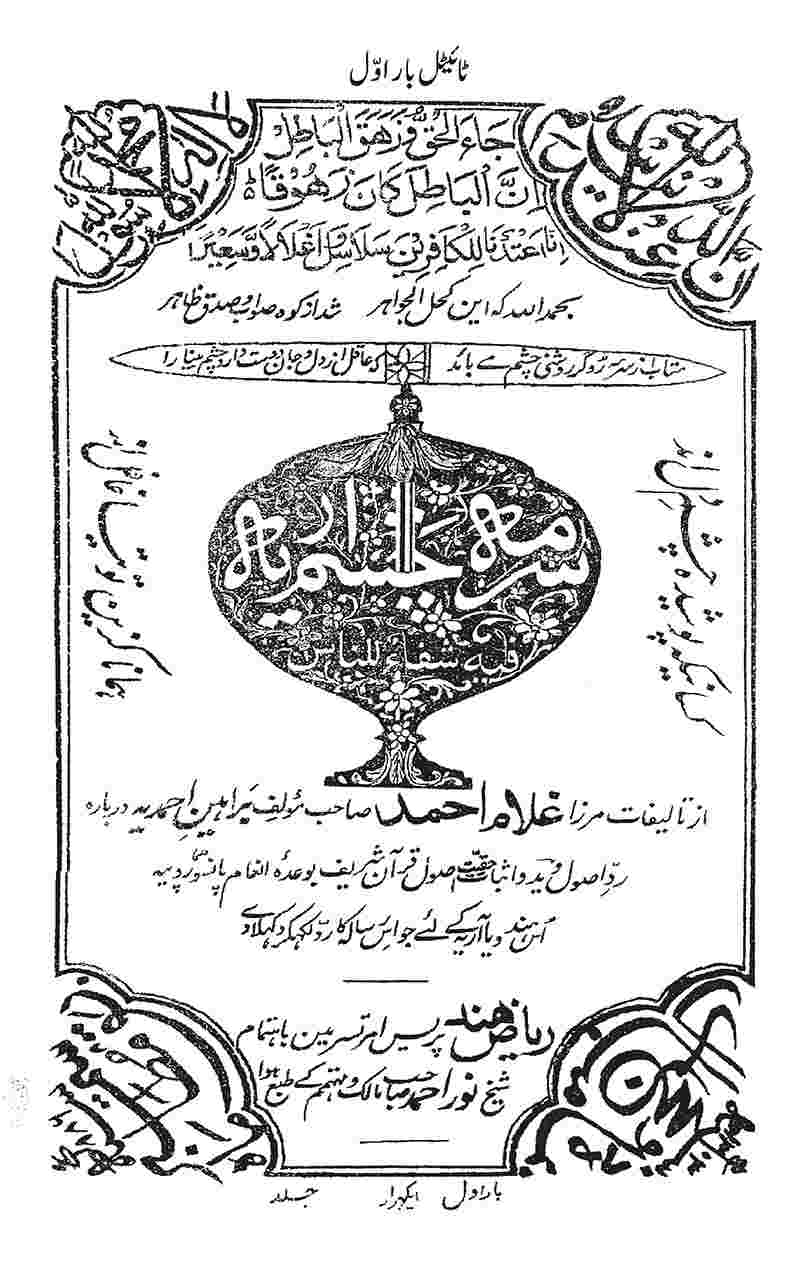 ٹائیٹل بار اوّل
جَاءَ الْحَقُّ وَزَهَقَ الْبَاطِلُ
اِنَّ الْبَاطِلَ كَانَ زَهُوْقًا
اِنَّا اَعْتَدْنَا لِلْكَافِرِيْنَ سَلَاسِلَ وَاَغْلَالًا وَّسَعِيْرًا
بحمد اللہ کہ این کحل الجواہر شد از کوہ صواب و صدق ظاہر
متاب از سرمہ رو گر روشنی چشم مے باید کہ عاقل از دل و جان دوست دارد چشم بینا را
کسانیکہ پوشیدہ چشم دل اند
ہمانا کزین توتیا غافل اند
سرمہ چشم آریہ
فیه شفاء للناس
از تالیفات مرزا غلام احمد صاحب مؤلف براہین احمدیہ دربارہ
ردّ اصول وید و اثبات حقیت اصول قرآن شریف بوعدہٴ انعام پانسو روپیہ
اُس ہندو یا آریہ کے لئے جو اس رسالہ کا ردّ لکھکر دکھلاوے
ریاض ہند پریس امرتسر مین باہتمام
شیخ نور احمد صاحب مالک و مہتمم کے طبع ہوا
بار اول ایکہزار جلد